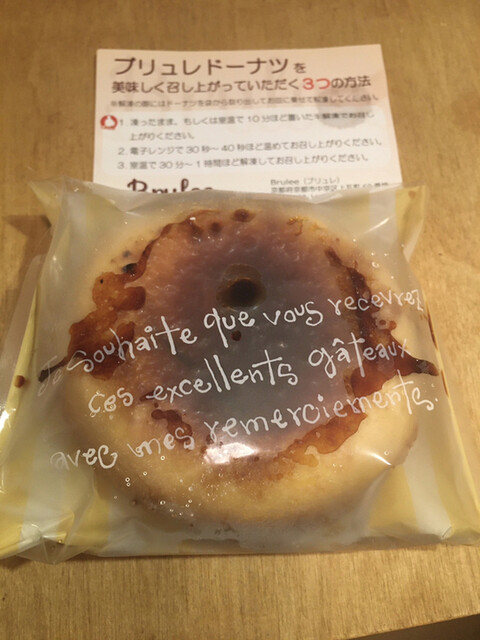 ブリュレドーナツを
美味しく召し上がっていただく3つの方法
※解凍の際にはドーナツを袋から取り出してお皿に乗せて解凍してください。
1. 凍ったまま、もしくは室温で10分ほど置いた半解凍でお召し
上がりください。
2. 電子レンジで30秒〜40秒ほど温めてお召し上がりください。
3. 室温で30分〜1時間ほど解凍してお召し上がりください。
Brulee
Brulee（ブリュレ）
Je souhaite que vous recevrez
ces excellents gâteaux
avec mes remerciements.